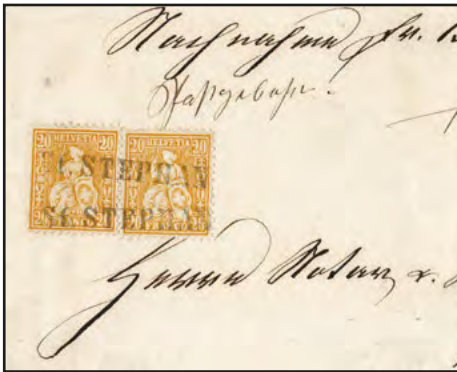 Nachnahme fr.
20 HELVETIA 20 20 HELVETIA 20
St. STEPHAN
St. STEPHAN
Herrn Notar &